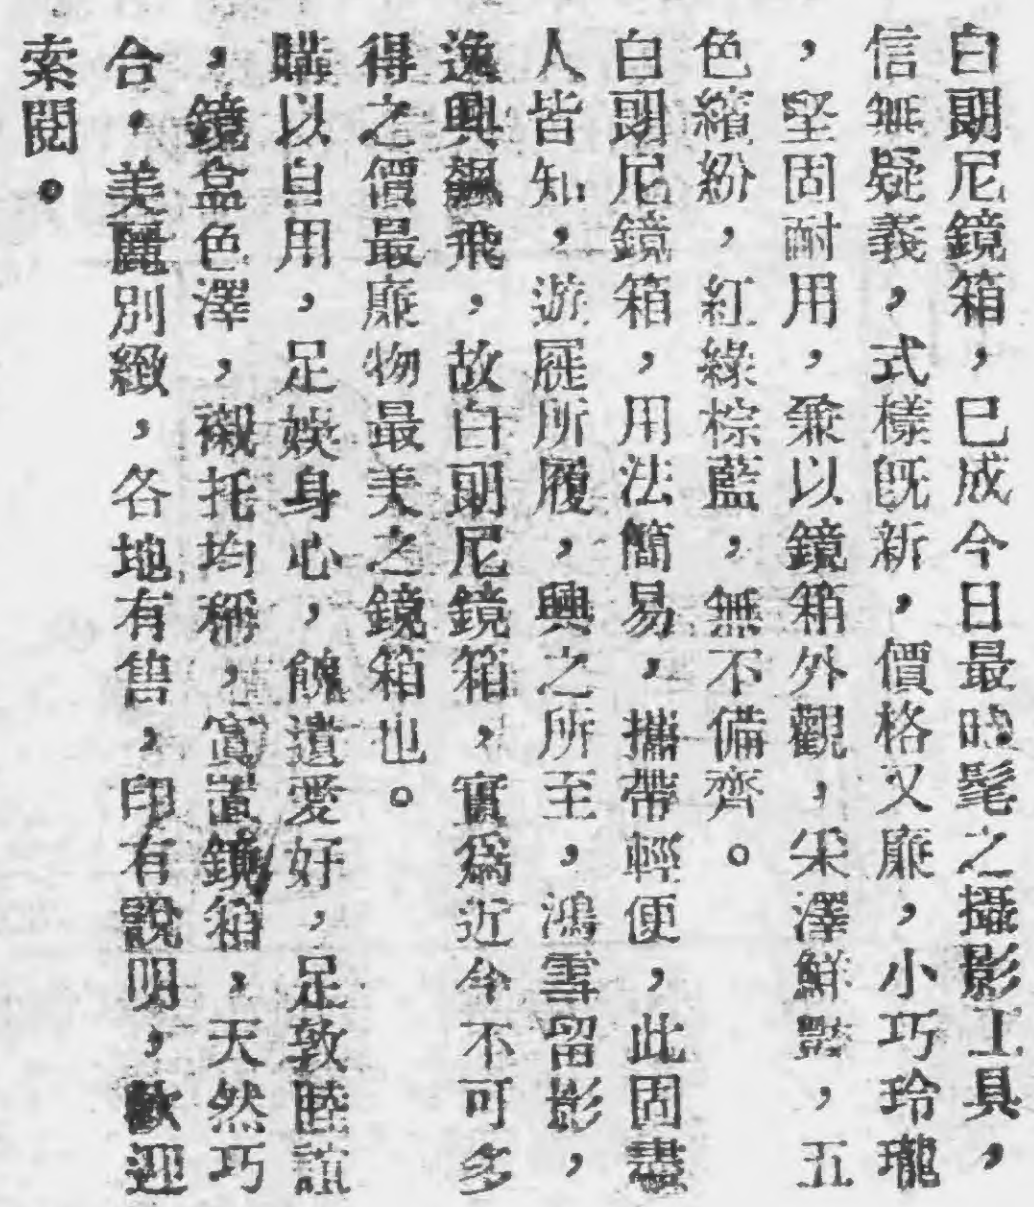 白朗尼鏡箱，已成今日最時髦之攝影工具，
信無疑義，式樣旣新，價格又廉，小巧玲瓏
，堅固耐用，兼以鏡箱外觀，采澤鮮豔，五
色繽紛，紅綠棕藍，無不備齊。
白朗尼鏡箱，用法簡易，攜帶輕便，此固盡
人皆知，游屐所履，興之所至，鴻雪留影，
逸興飆飛，故白朗尼鏡箱，實爲近今不可多
得之價最廉物最美之鏡箱也。
購以自用，足娛身心，餽遺愛好，足敦睦誼
，鏡盒色澤，襯托均稱，置鏡箱，天然巧
合，美麗別緻，各地有售，印有說明，歡迎
索閱。